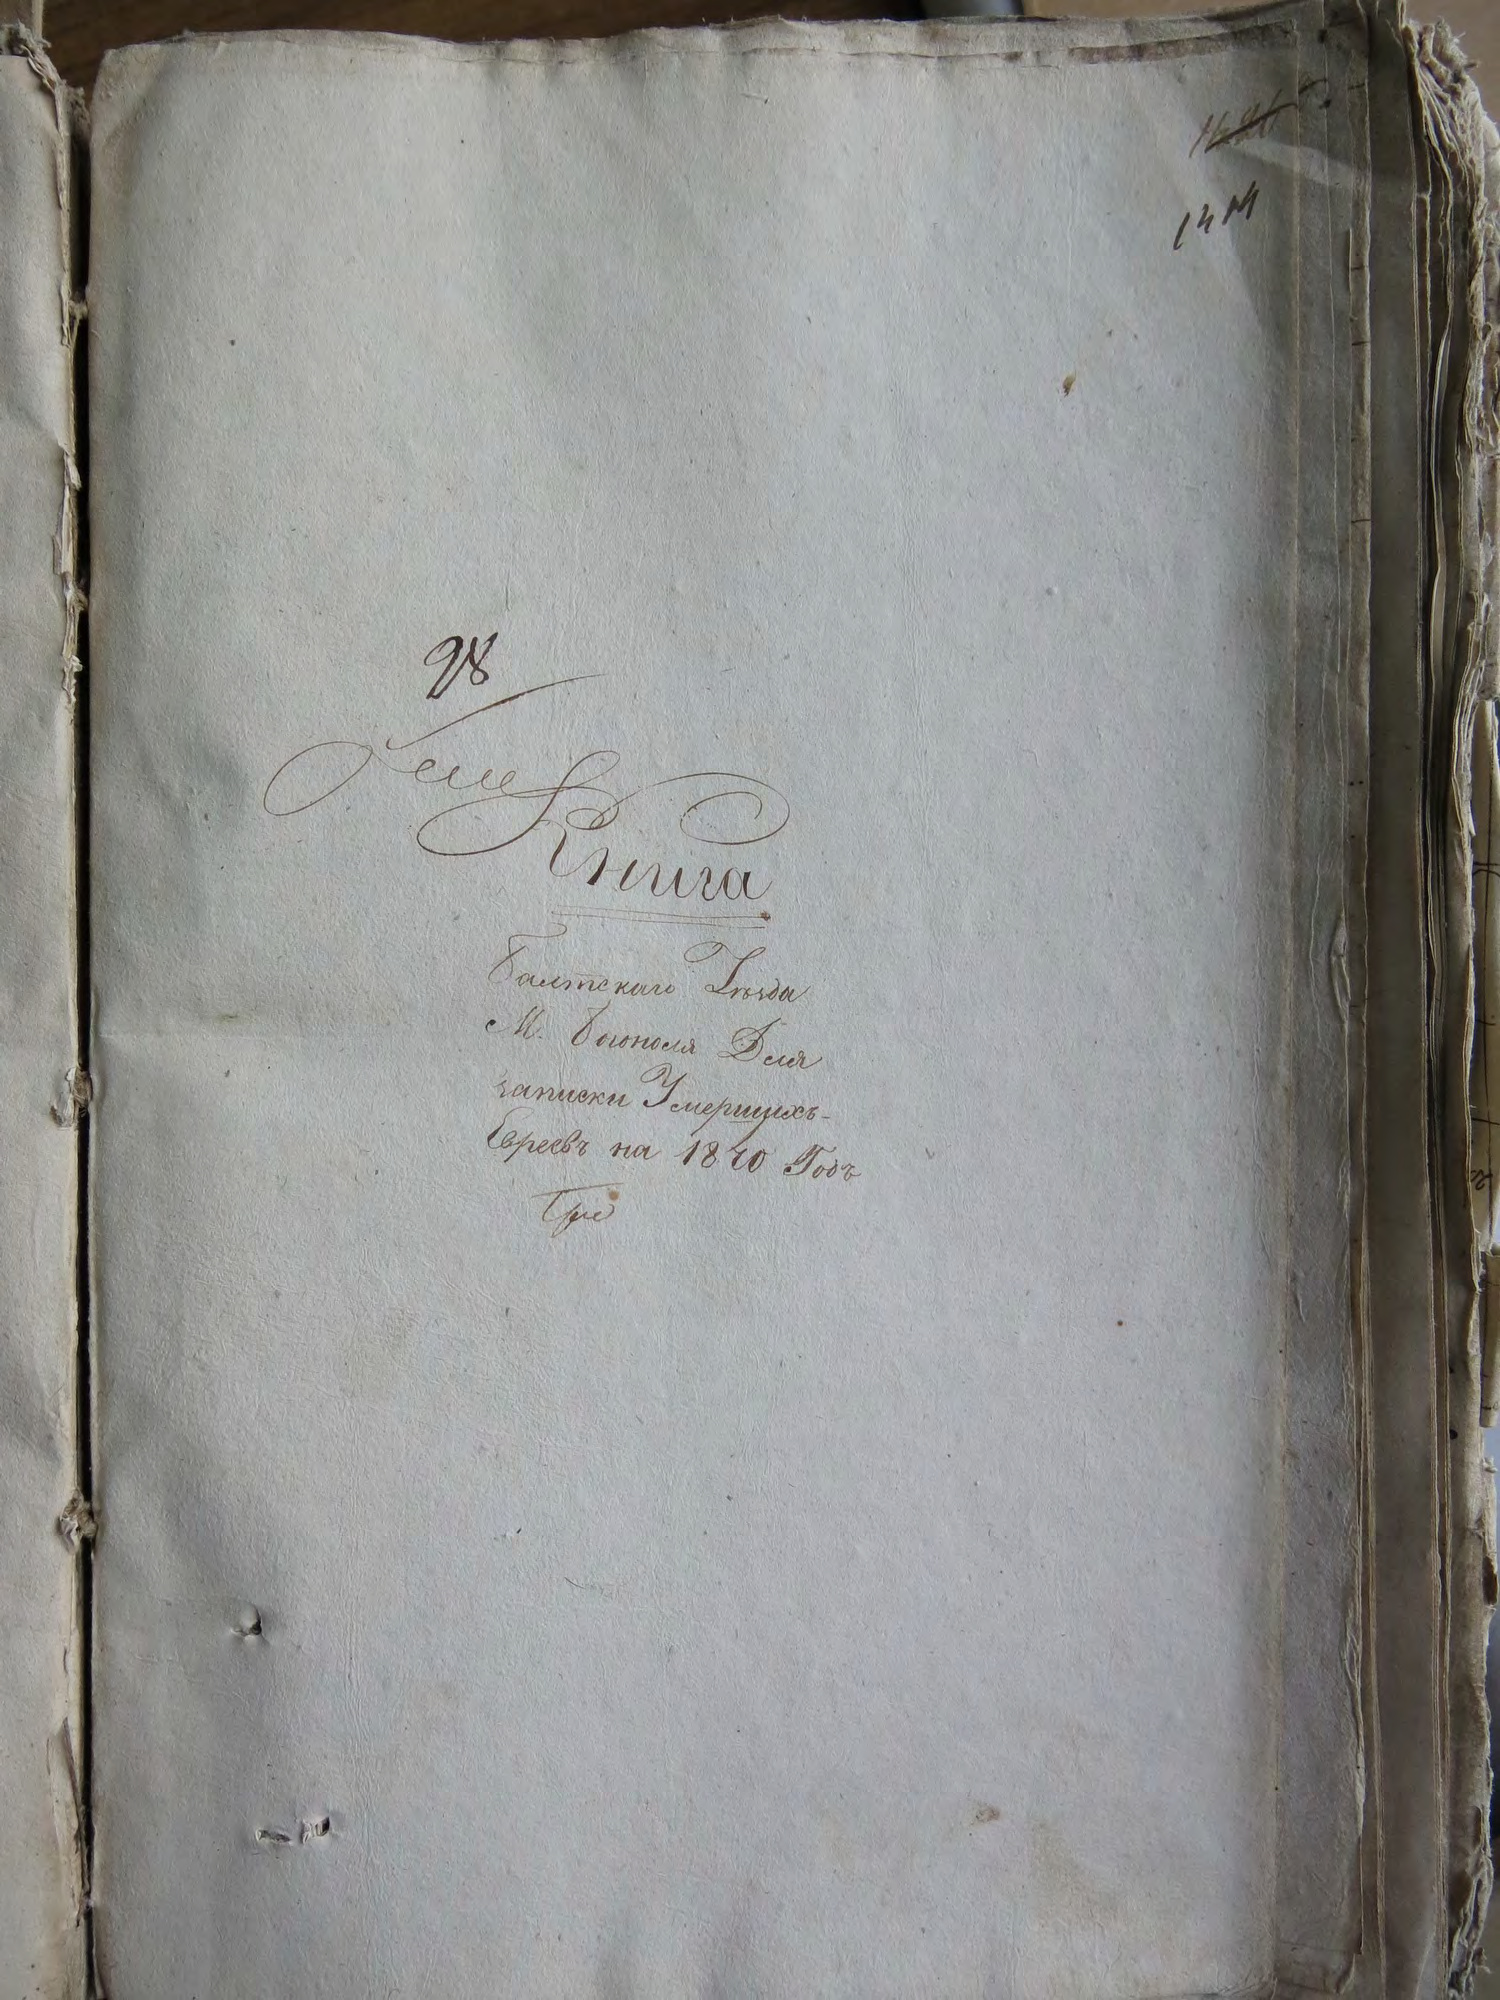 28
Книга
Балтскаго Уѣзда
М. Богополя Для
записки Умершихъ
Евреевъ на 1840 Годъ